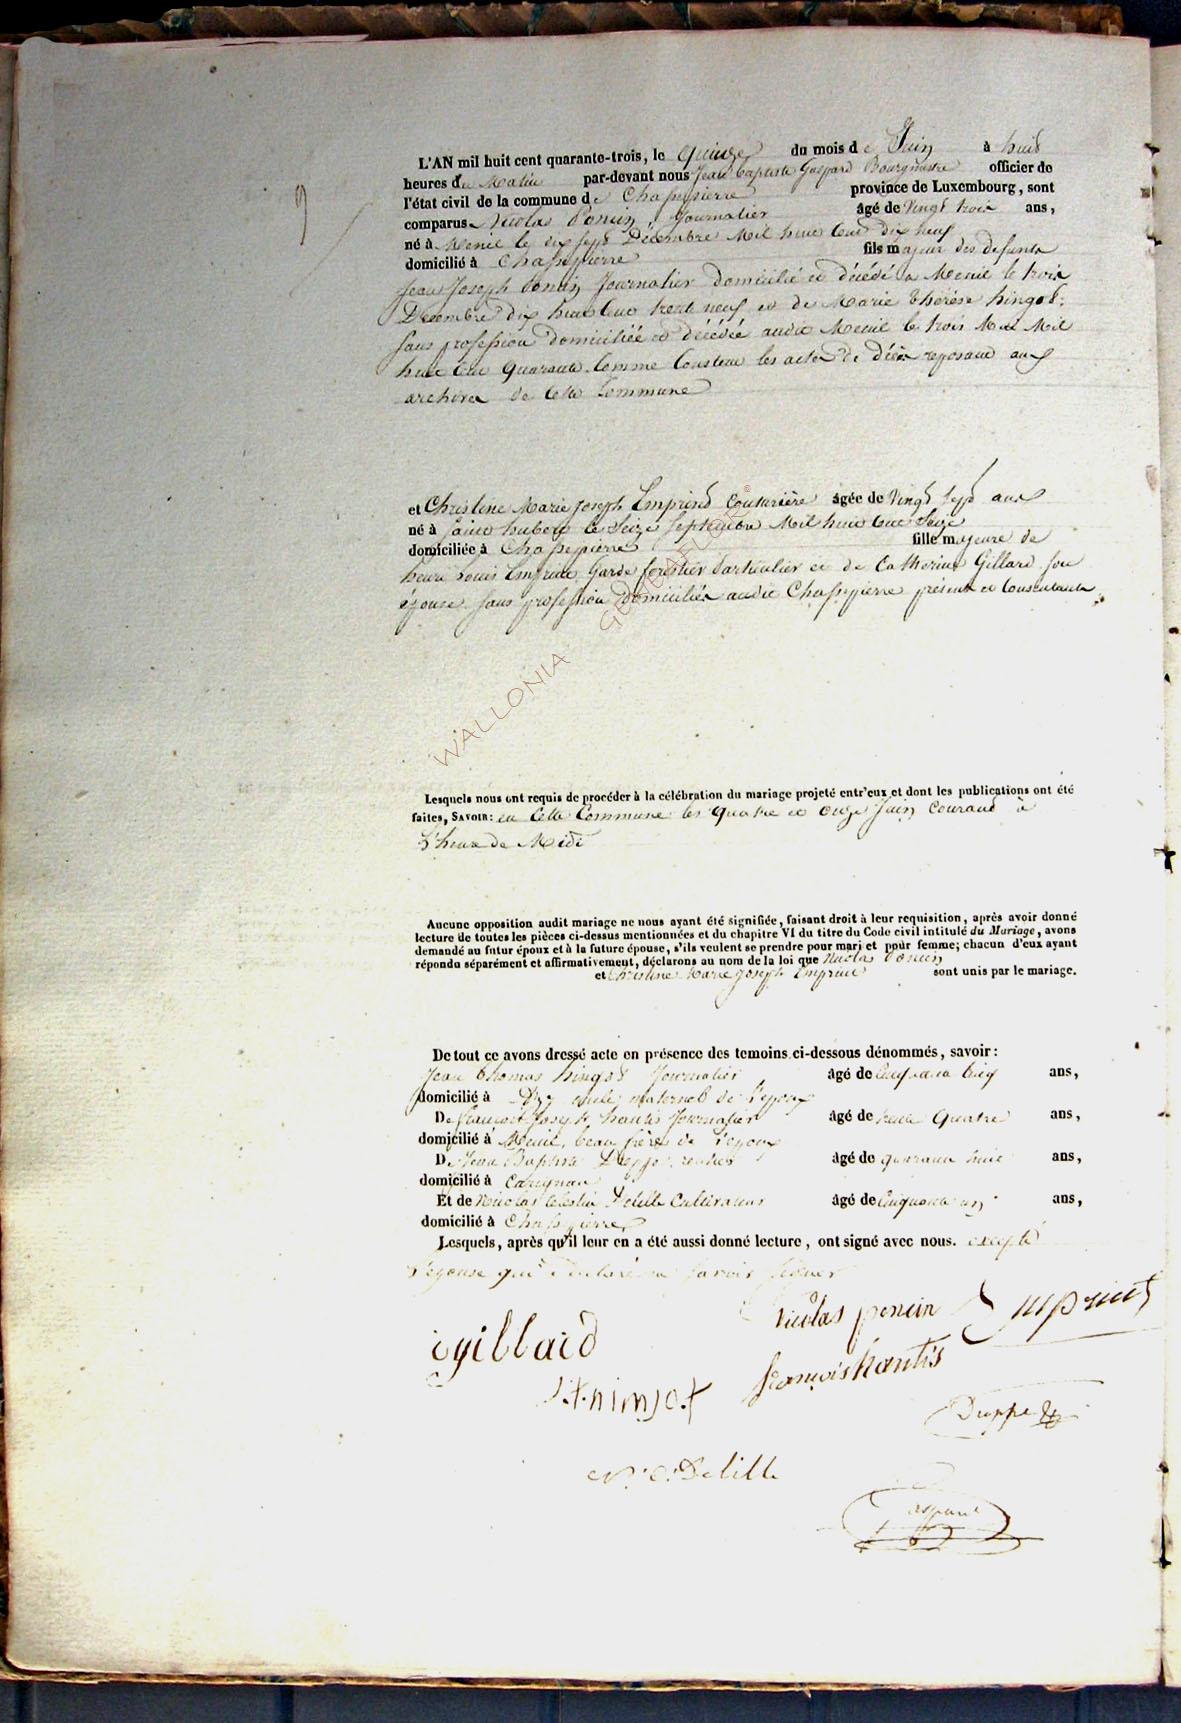 9
L'AN mil huit cent quarante-trois, le quinze du mois de Juin à huit
heures du Matin par-devant nous Jean Baptiste Gaspard Bourgmestre officier de
l'état civil de la commune de Chassepierre province de Luxembourg, sont
comparus Nicolas Poncin Journalier âgé de Vingt trois ans,
né à Menil le dix sept Décembre Mil huit Cent dix neuf
domicilié à Chassepierre fils majeur des defunts
Jean Joseph Poncin Journalier domicilié et décédé a Menil le trois
Décembre dix huit Cent trente neuf et de Marie thérèse hingot
Sans profession domiciliée et décédée audit Menil le trois Mai Mil
huit Cent Quarante Comme Constent les actes de décès reposant aux
archives de cette Commune
et Christine Marie Joseph Emprint Couturière âgée de Vingt Sept ans
né à Saint hubert le Seize Septembre Mil huit Cent Seize
domiciliée à Chassepierre fille majeure de
henri Louis Emprint Garde forestier particulier et de Catherine Gillard son
épouse Sans profession domiciliés audit Chassepierre présents et Consentants
WALLONIA GENEAFLORE ©
Lesquels nous ont requis de procéder à la célébration du mariage projeté entr'eux et dont les publications ont été
faites, SAVOIR: en Cette Commune les Quatre et onze Juin Courant à
l'heure de Midi
Aucune opposition audit mariage ne nous ayant été signifiée, faisant droit à leur requisition, après avoir donné
lecture de toutes les pièces ci-dessus mentionnées et du chapitre VI du titre du Code civil intitulé du Mariage, avons
demandé au futur époux et à la future épouse, s'ils veulent se prendre pour mari et pour femme; chacun d'eux ayant
répondu séparément et affirmativement, déclarons au nom de la loi que Nicolas Poncin
et Christine Marie Joseph Emprint sont unis par le mariage.
De tout ce avons dressé acte en présence des temoins ci-dessous dénommés, savoir:
Jean thomas hingot Journalier âgé de Cinquante Cinq ans,
domicilié à oncle maternel de l'epoux
De francois Joseph hantis Journalier âgé de trente Quatre ans,
domicilié à Menil, beau frère de l'epoux
De Jean Baptiste rentier âgé de quarante huit ans,
domicilié à Carignan
Et de Nicolas Celestin Delille Cultivateur âgé de Cinquante un ans,
domicilié à Chassepierre
Lesquels, après qu'il leur en a été aussi donné lecture, ont signé avec nous. excepté
l'epouse qui a declaré ne savoir signer
Nicolas poncin Emprint
c gillard
françois hantis
Duppe
N. C. Delille
Gaspard